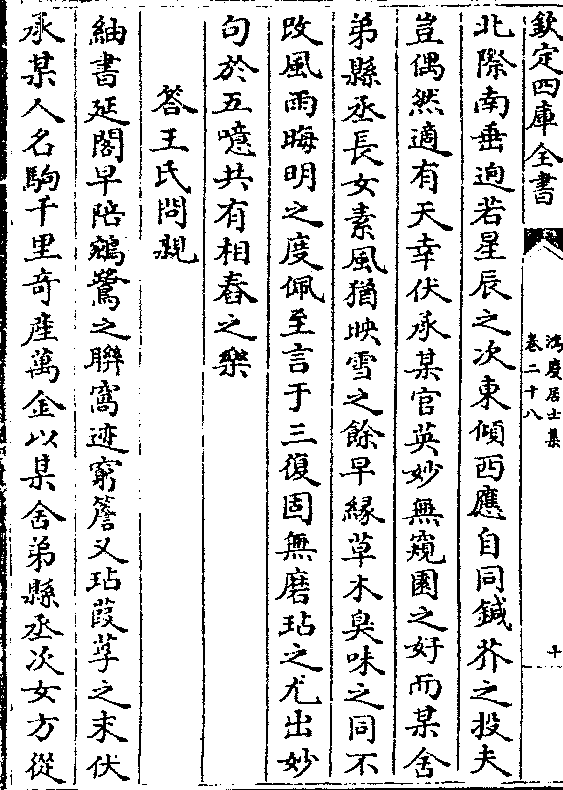 欽定四庫全書
鴻慶居士集
卷二十八
十
北際南垂逈若星辰之次東傾西應自同鍼芥之投夫
豈偶然適有天幸伏承某官英妙無窺園之好而某舍
弟縣丞長女素風猶映雪之餘早緣草木臭味之同不
改風雨晦明之度佩至言于三復固無磨玷之尤出妙
句於五噫共有相舂之樂
答王氏問親
紬書延閣早陪鵷鷺之聯窩迹窮簷又玷葭莩之末伏
承某人名駒千里奇産萬金以某舍弟縣丞次女方從